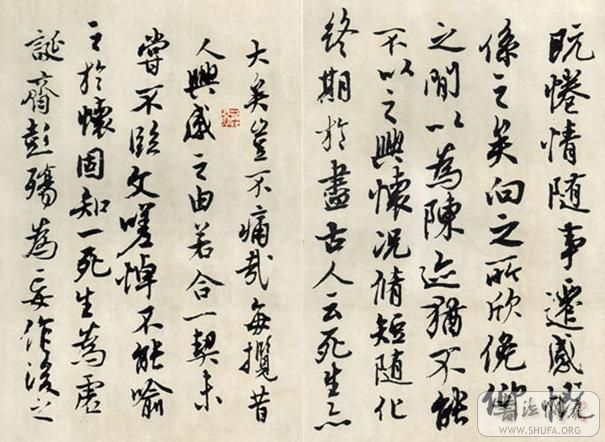 既惓情随事遷感慨
係之矣向之所欣俛仰
之間以為陳迹猶不能
不以之興懷況脩短随化
終期於盡古人云死生亦
大矣豈不痛哉每攬昔
人興感之由若合一契未
嘗不臨文嗟悼不能喻
之於懷固知一死生為虛
誕齊彭殤為妄作後之
WWW.SHUFA.ORG